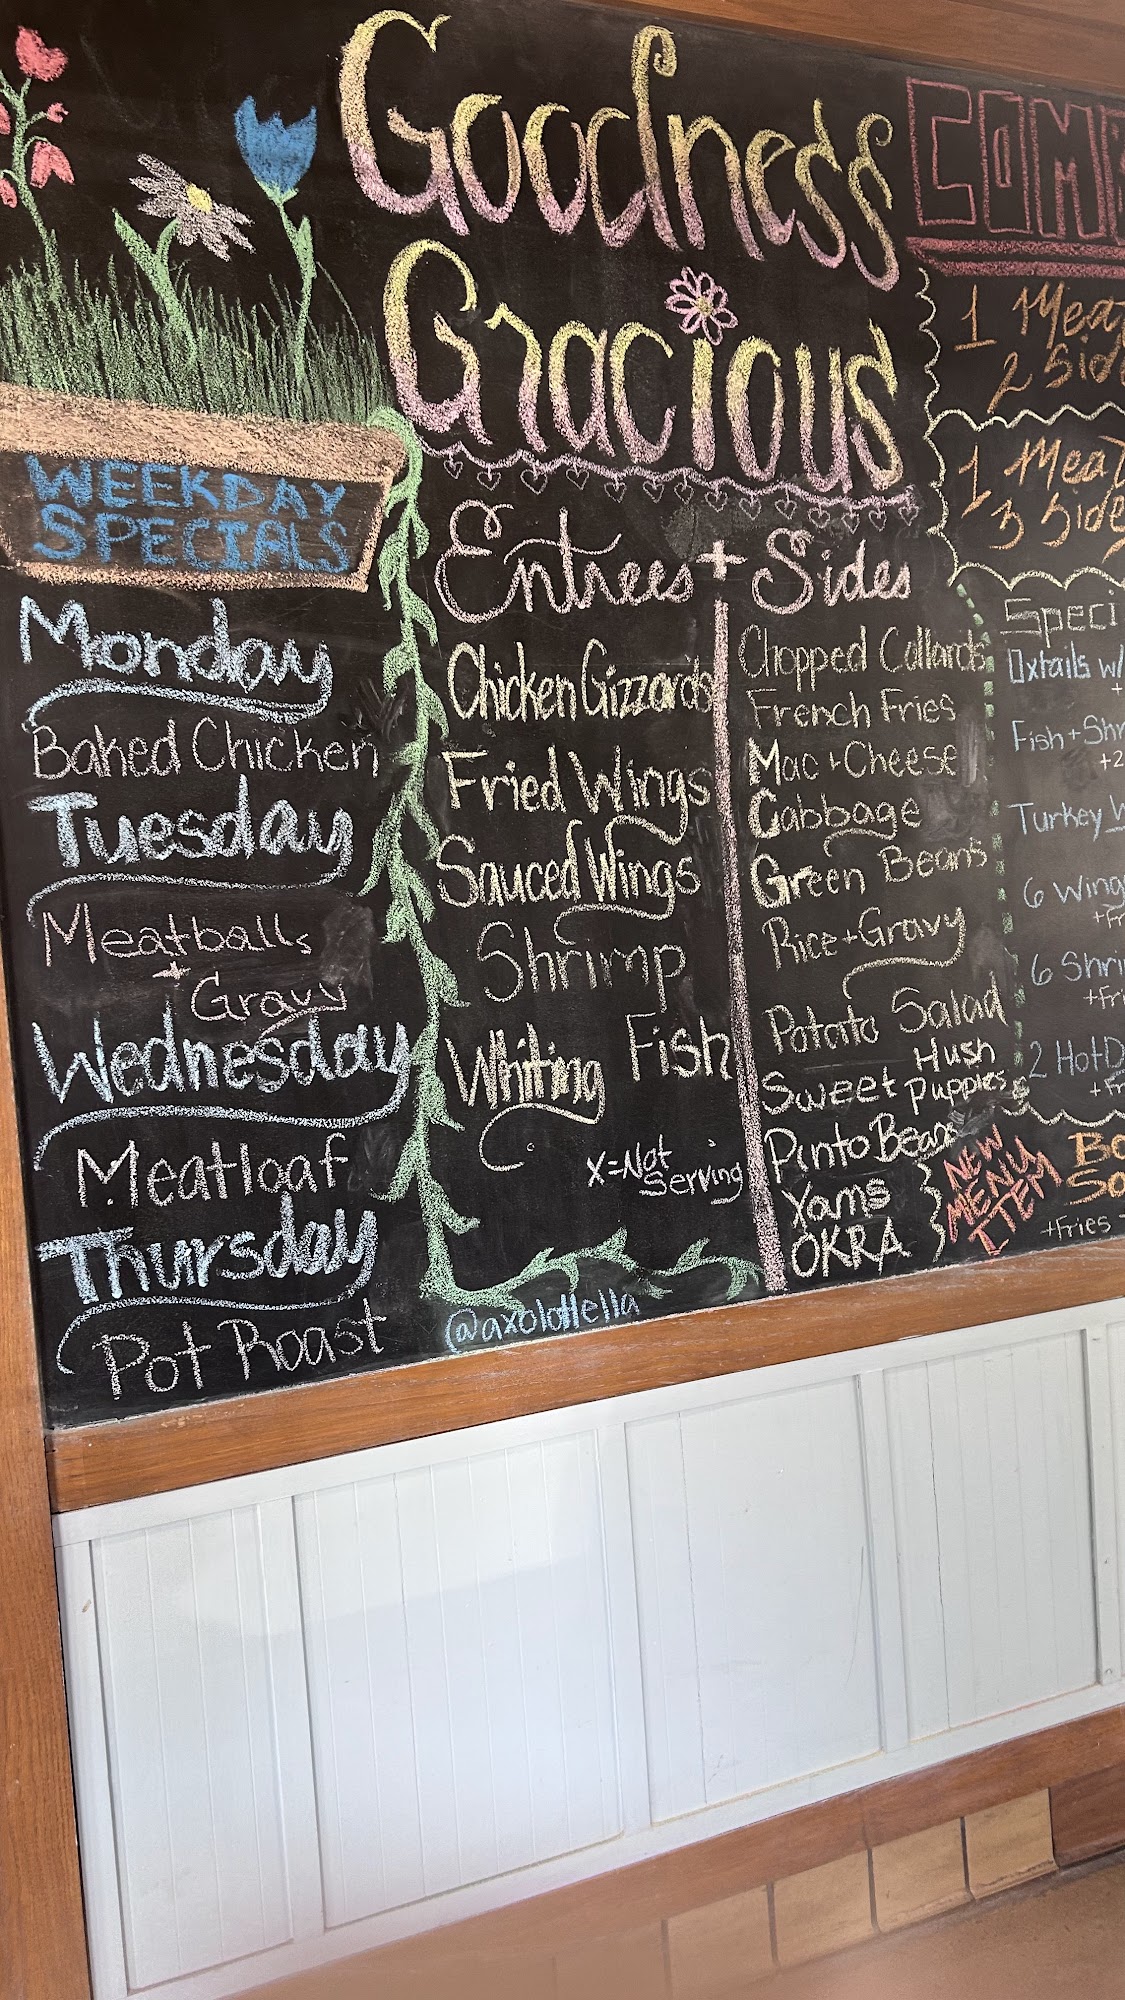 Goodness
Gracious
WEEKDAY
SPECIALS
Monday
Baked Chicken
Tuesday
Meatballs
+
Gravy
Wednesday
Meatloaf
Thursday
Pot Roast
Entrees + Sides
Chicken Gizzards
Fried Wings
Sauced Wings
Shrimp
Whiting Fish
X=Not
Serving
@axolottella
Chopped Collards
French Fries
Mac+Cheese
Cabbage
Green Beans
Rice+Gravy
Potato Salad
Sweet Hush
Puppies
Pinto Beans
Yams
OKRA
1 Mea
2 Side
1 Meat
3 Side
Speci
Oxtails w/
+
Fish+Shr
+2
Turkey W
6 Wing
+Fr
6 Shri
+Fri
2 HotD
+Fr
NEW
MENU
ITEM
+Fries